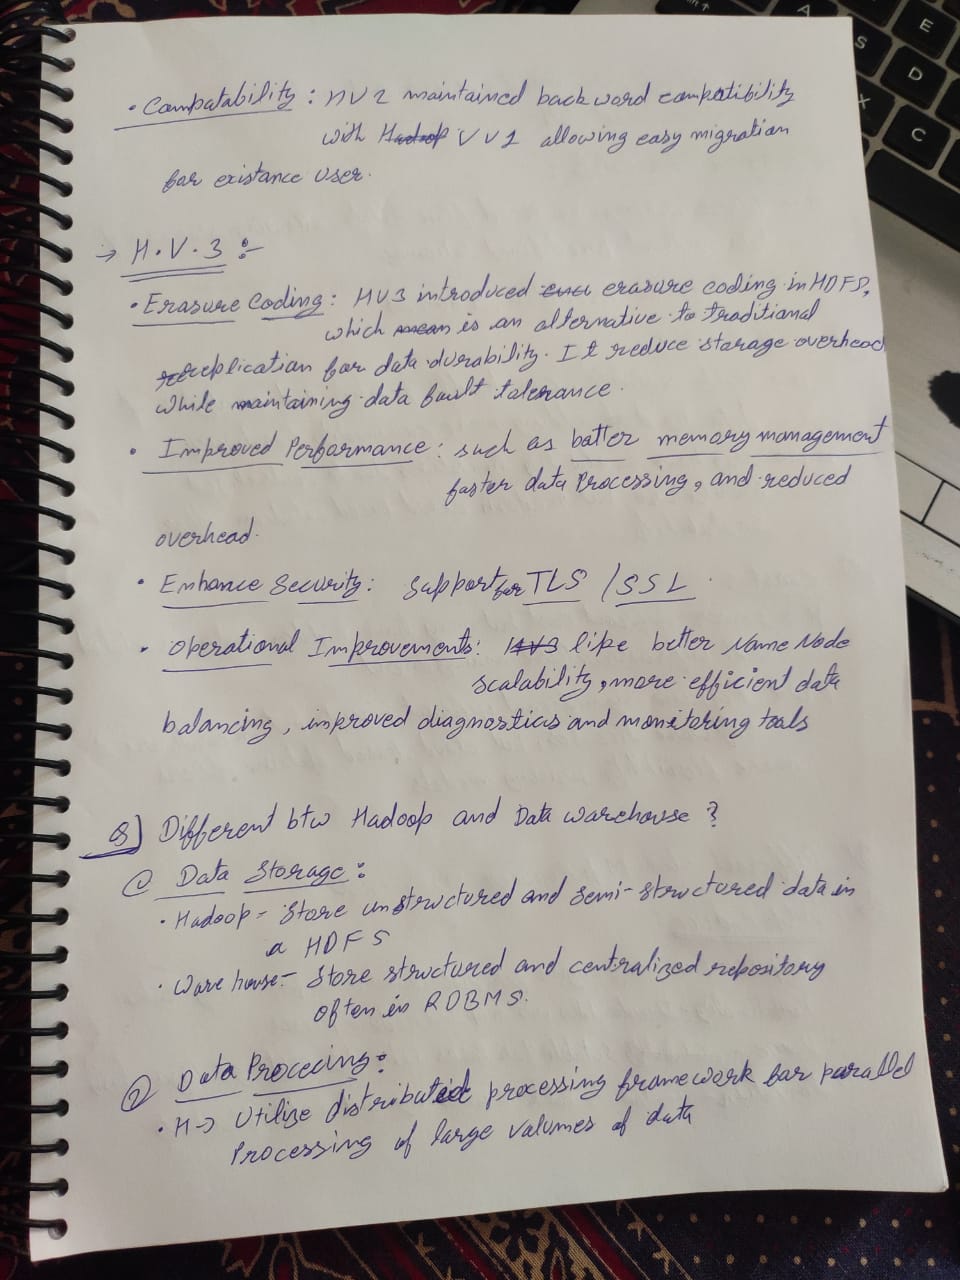 • Compatability : HV2 maintained backward compatibility
with Hadoop VV1 allowing easy migration
for existance user.
→ H.V.3 :-
• Erasure Coding : HV3 introduced erasure coding in HDFS,
which is an alternative to traditional
replication for data durability. It reduce storage overhead
while maintaining data fault tolerance.
• Improved Performance : such as batter memory management
faster data Processing, and reduced
overhead.
• Enhance Security : Support for TLS / SSL.
• Operational Improvements : HV3 like better Name Node
scalability, more efficient data
balancing, improved diagnostics and monitoring tools
Q) Different btw Hadoop and Data warehouse ?
① Data Storage :
• Hadoop - Store unstructured and semi-structured data in
a HDFS
• Ware house - Store structured and centralized repository
often in RDBMS.
② Data Procecing :
• H → Utilize distributed processing framework for parallel
Processing of large valumes of data
A
E
S
D
X
C